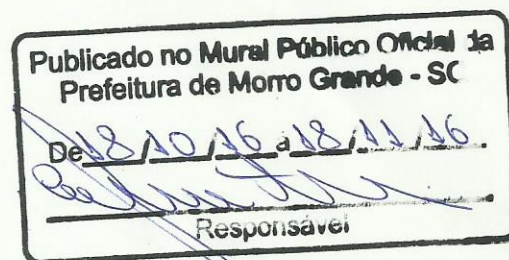 Publicado no Mural Público Oficial da
Prefeitura de Morro Grande - SC
De 18/10/16 a 18/11/16.
Responsável